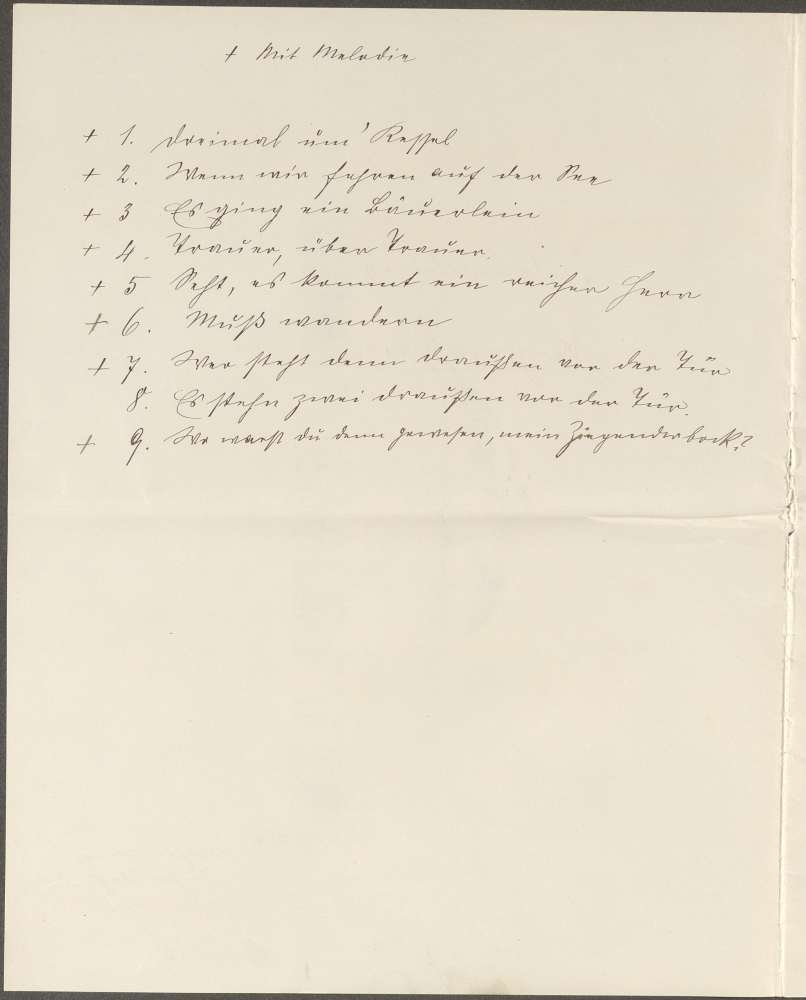 + Mit Melodie
+ 1. Dreimal um' Kessel
+ 2. Wenn wir fahren auf der See
+ 3 Es ging ein Bäuerlein
+ 4. Trauer, über Trauer.
+ 5 Seht, es kommt ein reicher Herr
+ 6. Muß wandern
+ 7. Wer steht denn draußen vor der Tür
8. Es stehn zwei draußen vor der Tür.
+ 9. Wo warst du denn gewesen, mein Ziegenderbock?